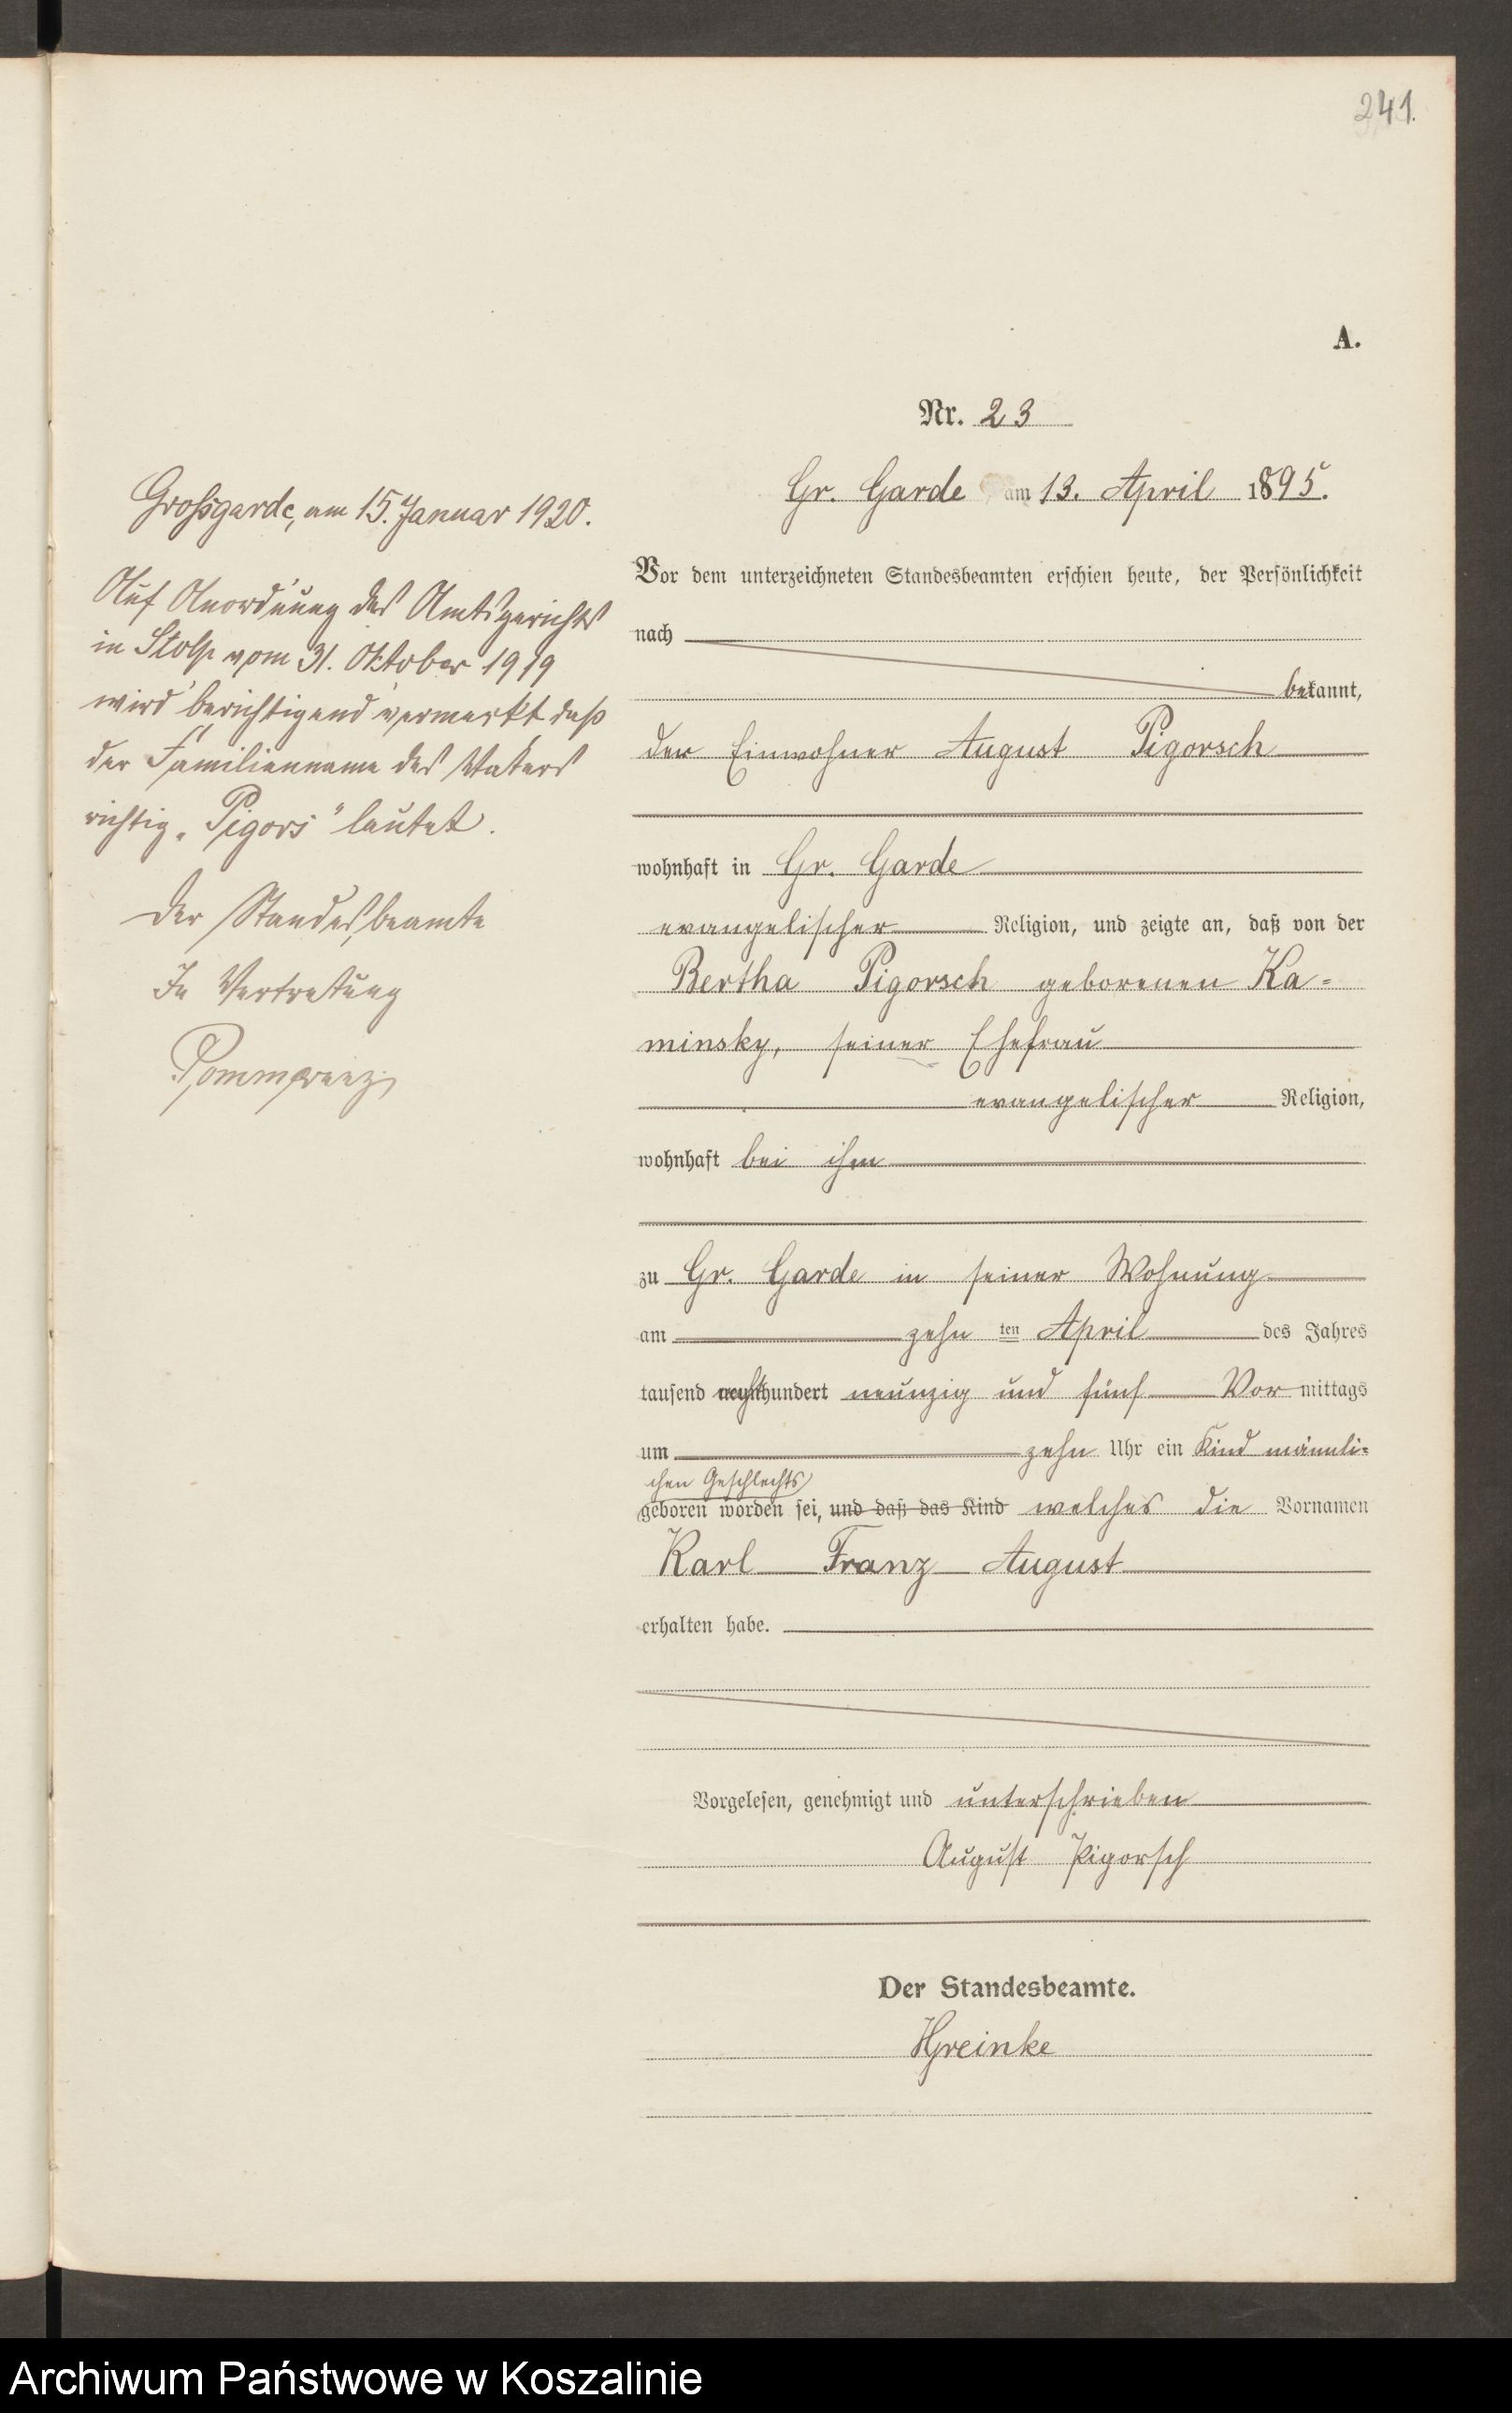 241.
A.
Nr. 23
Gr. Garde am 13. April 1895.
Vor dem unterzeichneten Standesbeamten erschien heute, der Persönlichkeit
nach
bekannt,
der Einwohner August Pigorsch
wohnhaft in Gr. Garde
evangelischer Religion, und zeigte an, daß von der
Bertha Pigorsch geborenen Ka=
minsky, seiner Ehefrau
evangelischer Religion,
wohnhaft bei ihm
zu Gr. Garde in seiner Wohnung
am zehn ten April des Jahres
tausend achthundert neunzig und fünf Vor mittags
um zehn Uhr ein Kind männli=
chen Geschlechts
geboren worden sei, und daß das Kind welches die Vornamen
Karl Franz August
erhalten habe.
Vorgelesen, genehmigt und unterschrieben
August Pigorsch
Der Standesbeamte.
Greinke
Grossgarde, am 15. Januar 1920.
Auf Anordnung des Amtsgerichts
in Stolp vom 31. Oktober 1919
wird berichtigend vermerkt daß
der Familienname des Vaters
richtig „Pigors" lautet.
Der Standesbeamte
In Vertretung
Archiwum Państwowe w Koszalinie